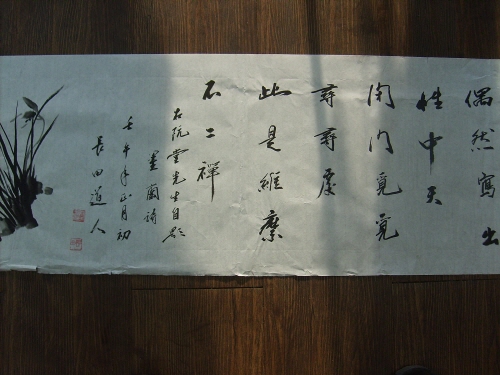 偶然寫出
性中天
閉門覓覓
尋尋處
此是維摩
不二禪
右阮堂先生自題
墨蘭詩
壬午年正月初
長田道人